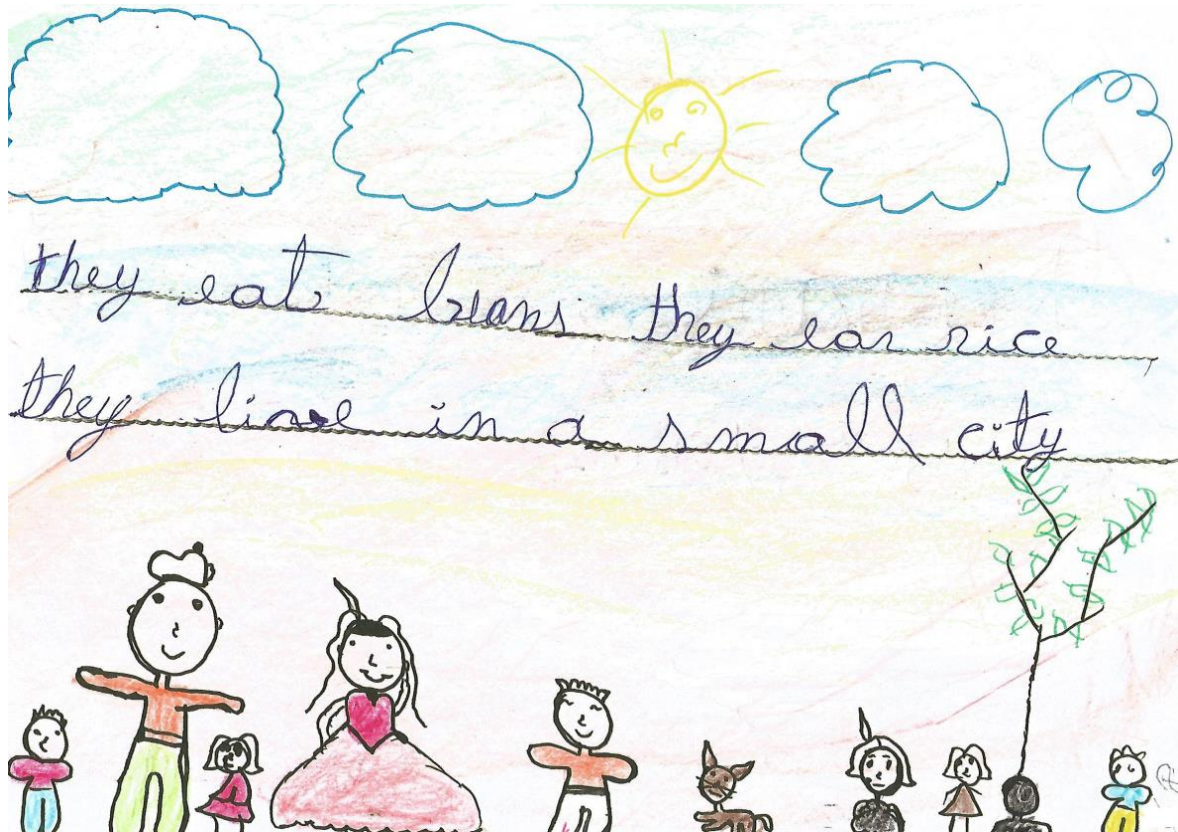 they eat beans they ear rice
they live in a small city